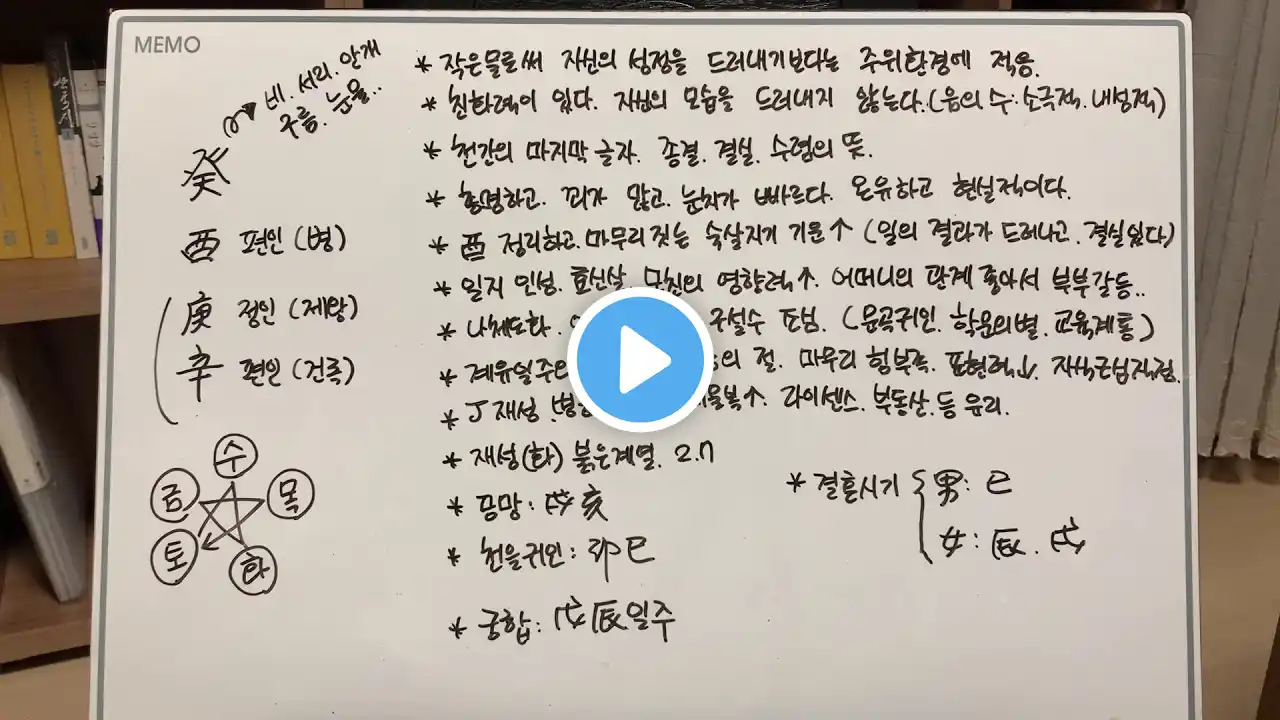 MEMO
비. 서리. 안개
구름. 눈물..
癸
酉 편인 (병)
庚 정인 (제왕)
辛 편인 (건록)
수
금 목
토 화
* 작은물로써 자신의 성정을 드러내기보다는 주위환경에 적응.
* 친화력이 있다. 자신의 모습을 드러내지 않는다. (음의 수: 소극적. 내성적)
* 천간의 마지막 글자. 종결. 결실. 수렴의 뜻.
* 총명하고. 꾀가 많고. 눈치가 빠르다. 온유하고 현실적이다.
* 酉 정리하고. 마무리 짓는 숙살지기 기운↑ (일의 결과가 드러나고. 결실있다)
* 일지 인성. 효신살. 모친의 영향력↑. 어머니의 관계 좋아서 부부갈등..
* 나체도화. 구설수 조심. (문곡귀인. 학문의별. 교육계통)
* 계유일주의 절. 마무리 힘부족. 표현력↓. 자식근심걱정.
* 丁 재성. 라이센스. 부동산. 등 유리.
* 재성(화) 붉은계열. 2.7
* 공망: 戌 亥
* 천을귀인: 卯 巳
* 궁합: 戊辰일주
* 결혼시기 { 男: 巳
女: 辰. 戌